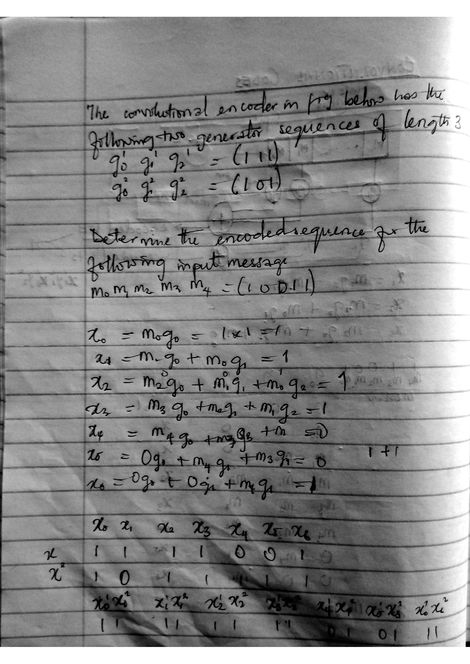 The convolutional encoder in fig below has the
following two generator sequences of length 3
g₀¹ g₁¹ g₂¹ = (1 1 1)
g₀² g₁² g₂² = (1 0 1)
Determine the encoded sequence for the
following input message
m₀ m₁ m₂ m₃ m₄ = (1 0 0 1 1)
x₀ = m₀g₀ = 1x1 = 1
x₁ = m₁g₀ + m₀g₁ = 1
x₂ = m₂g₀ + m₁g₁ + m₀g₂ = 1
x₃ = m₃g₀ + m₂g₁ + m₁g₂ = 1
x₄ = m₄g₀ + m₃g₃ + m = 0
x₅ = 0g₀ + m₄g₁ + m₃g₂ = 0 1+1
x₆ = 0g₀ + 0g₁ + m₄g₂ = 1
x₀ x₁ x₂ x₃ x₄ x₅ x₆
x 1 1 1 1 0 0 1
x² 1 0 1 1 1 1 1
x₀¹x₀² x₁¹x₁² x₂¹x₂² x₃¹x₃² x₄¹x₄² x₅¹x₅² x₆¹x₆²
11 11 11 11 01 01 11